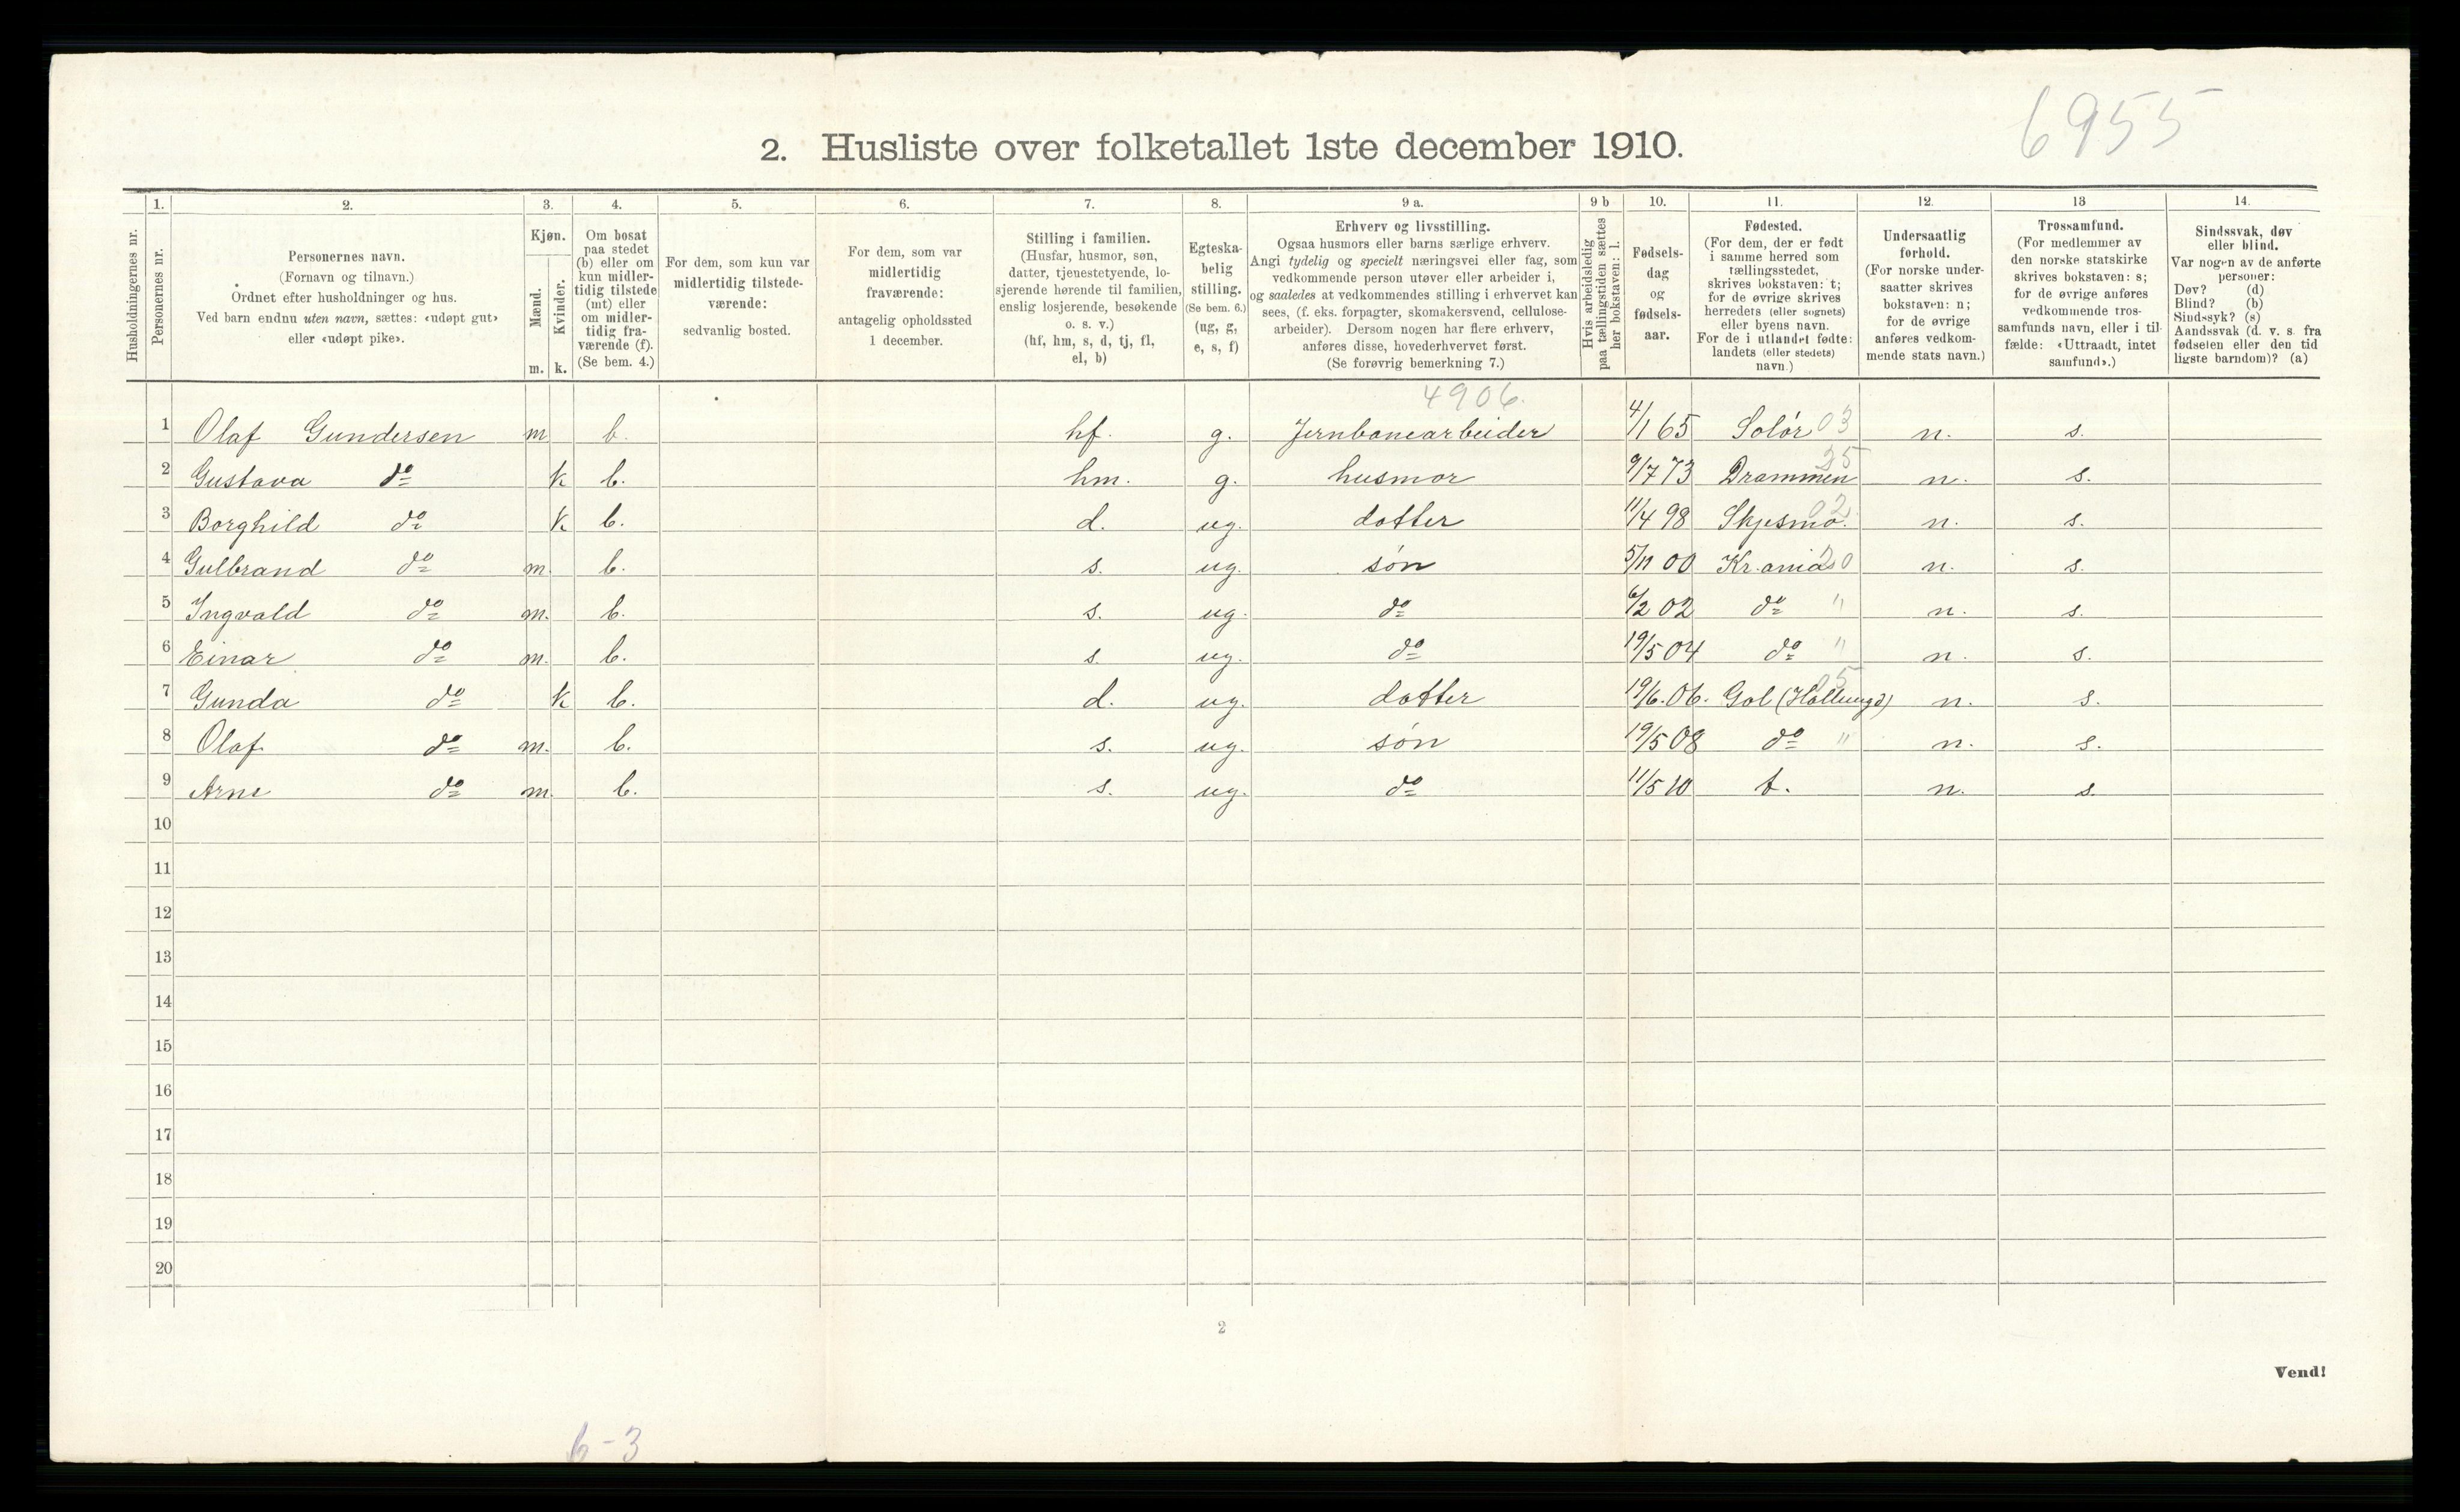 6955
2. Husliste over folketallet 1ste december 1910.
Husholdningernes nr.
1.
Personernes nr.
2.
Personernes navn.
(Fornavn og tilnavn.)
Ordnet efter husholdninger og hus.
Ved barn endnu uten navn, sættes: «udøpt gut»
eller «udøpt pike».
3.
Kjøn.
Mænd.
Kvinder.
m. k.
4.
Om bosat
paa stedet
(b) eller om
kun midler-
tidig tilstede
(mt) eller
om midler-
tidig fra-
værende (f).
(Se bem. 4.)
5.
For dem, som kun var
midlertidig tilstede-
værende:
sedvanlig bosted.
6.
For dem, som var
midlertidig
fraværende:
antagelig opholdssted
1 december.
7.
Stilling i familien.
(Husfar, husmor, søn,
datter, tjenestetyende, lo-
sjerende hørende til familien,
enslig losjerende, besøkende
o. s. v.)
(hf, hm, s, d, tj, fl,
el, b)
8.
Egteska-
belig
stilling.
(Se bem. 6.)
(ug, g,
e, s, f)
9 a.
Erhverv og livsstilling.
Ogsaa husmors eller barns særlige erhverv.
Angi tydelig og specielt næringsvei eller fag, som
vedkommende person utøver eller arbeider i,
og saaledes at vedkommendes stilling i erhvervet kan
sees, (f. eks. forpagter, skomakersvend, cellulose-
arbeider). Dersom nogen har flere erhverv,
anføres disse, hovederhvervet først.
(Se forøvrig bemerkning 7.)
9 b
Hvis arbeidsledig
paa tællingstiden sættes
her bokstaven: l.
10.
Fødsels-
dag
og
fødsels-
aar.
11.
Fødested.
(For dem, der er født
i samme herred som
tællingsstedet,
skrives bokstaven: t;
for de øvrige skrives
herredets (eller sognets)
eller byens navn.
For de i utlandet fødte:
landets (eller stedets)
navn.)
12.
Undersaatlig
forhold.
(For norske under-
saatter skrives
bokstaven: n;
for de øvrige
anføres vedkom-
mende stats navn.)
13
Trossamfund.
(For medlemmer av
den norske statskirke
skrives bokstaven: s;
for de øvrige anføres
vedkommende tros-
samfunds navn, eller i til-
fælde: «Uttraadt, intet
samfund».)
14.
Sindssvak, døv
eller blind.
Var nogen av de anførte
personer:
Døv? (d)
Blind? (b)
Sindssyk? (s)
Aandssvak (d. v. s. fra
fødselen eller den tid
ligste barndom)? (a)
4906.
1 Olaf Gundersen m b. hf. g. Jernbanearbeider 4/1 65 Solør 03 n. s.
2 Gustava do k b. hm. g. husmor 9/7 73 Drammen 25 n. s.
3 Borghild do k b. d. ug. datter 11/4 98 Skjesmo. 02 n. s.
4 Gulbrand do m. b. s. ug. søn 5/11 00 Kr.ania 20 n. s.
5 Ingvald do m. b. s. ug. do 6/2 02 do " n. s.
6 Einar do m. b. s. ug. do 19/5 04 do " n. s.
7 Gunda do k b. d. ug. datter 19/6.06. Gol (Hallingd) 05 n. s.
8 Olaf do m. b. s. ug. søn 19/5 08 do " n. s.
9 Arne do m. b. s. ug. do 11/5 10 t. n. s.
10
11
12
13
14
15
16
17
18
19
20
2
Vend!
6-3